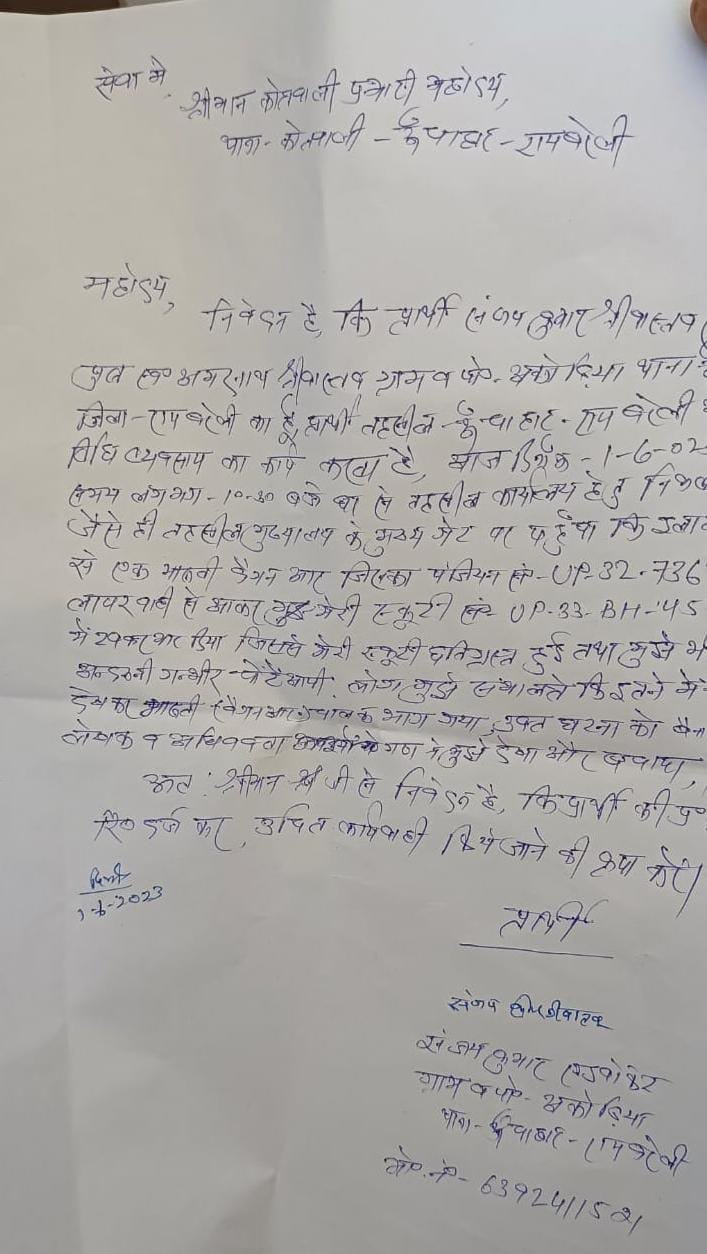 सेवा मे,
श्रीमान कोतवाली प्रभारी महोदय,
थाना- कोतवाली - ऊँचाहार - रायबरेली
महोदय,
निवेदन है, कि प्रार्थी संजय कुमार श्रीवास्तव
पुत्र स्व० अमरनाथ श्रीवास्तव ग्राम व पो०- अकोढ़िया थाना
जिला- रायबरेली का हूँ, प्रार्थी तहसील - ऊँचाहार - रायबरेली
विधि व्यवसाय का कार्य करता है, आज दिनांक - 1-6-02
समय लगभग - 10-30 बजे घर से तहसील कार्यालय हेतु
जैसे ही तहसील मुख्यालय के मुख्य गेट पर पहुँचा कि
से एक मारुती वैगन आर जिसका पंजियन सं०- UP-32-736
लापरवाही से आकर मेरी स्कूटी सं०- UP-33-BH-45
में टक्कर मार दिया जिससे मेरी स्कूटी क्षतिग्रस्त हुई तथा मुझे
अन्दरुनी गम्भीर चोटें आयी. लोग मुझे संभालते कि इतने में
देखकर मारुती वैगनआर चालक भाग गया, उक्त घटना को
लेखक व अधिवक्ता गण ने मुझे देखा और बचाया,
अतः श्रीमान जी से निवेदन है, कि प्रार्थी की
रि० दर्ज कर, उचित कार्यवाही किये जाने की कृपा करें।
दिनाँक
1-6-2023
प्रार्थी
संजय श्रीवास्तव
संजय कुमार एडवोकेट
ग्राम व पो०- अकोढ़िया
थाना- ऊँचाहार - रायबरेली
मो०.नं०-